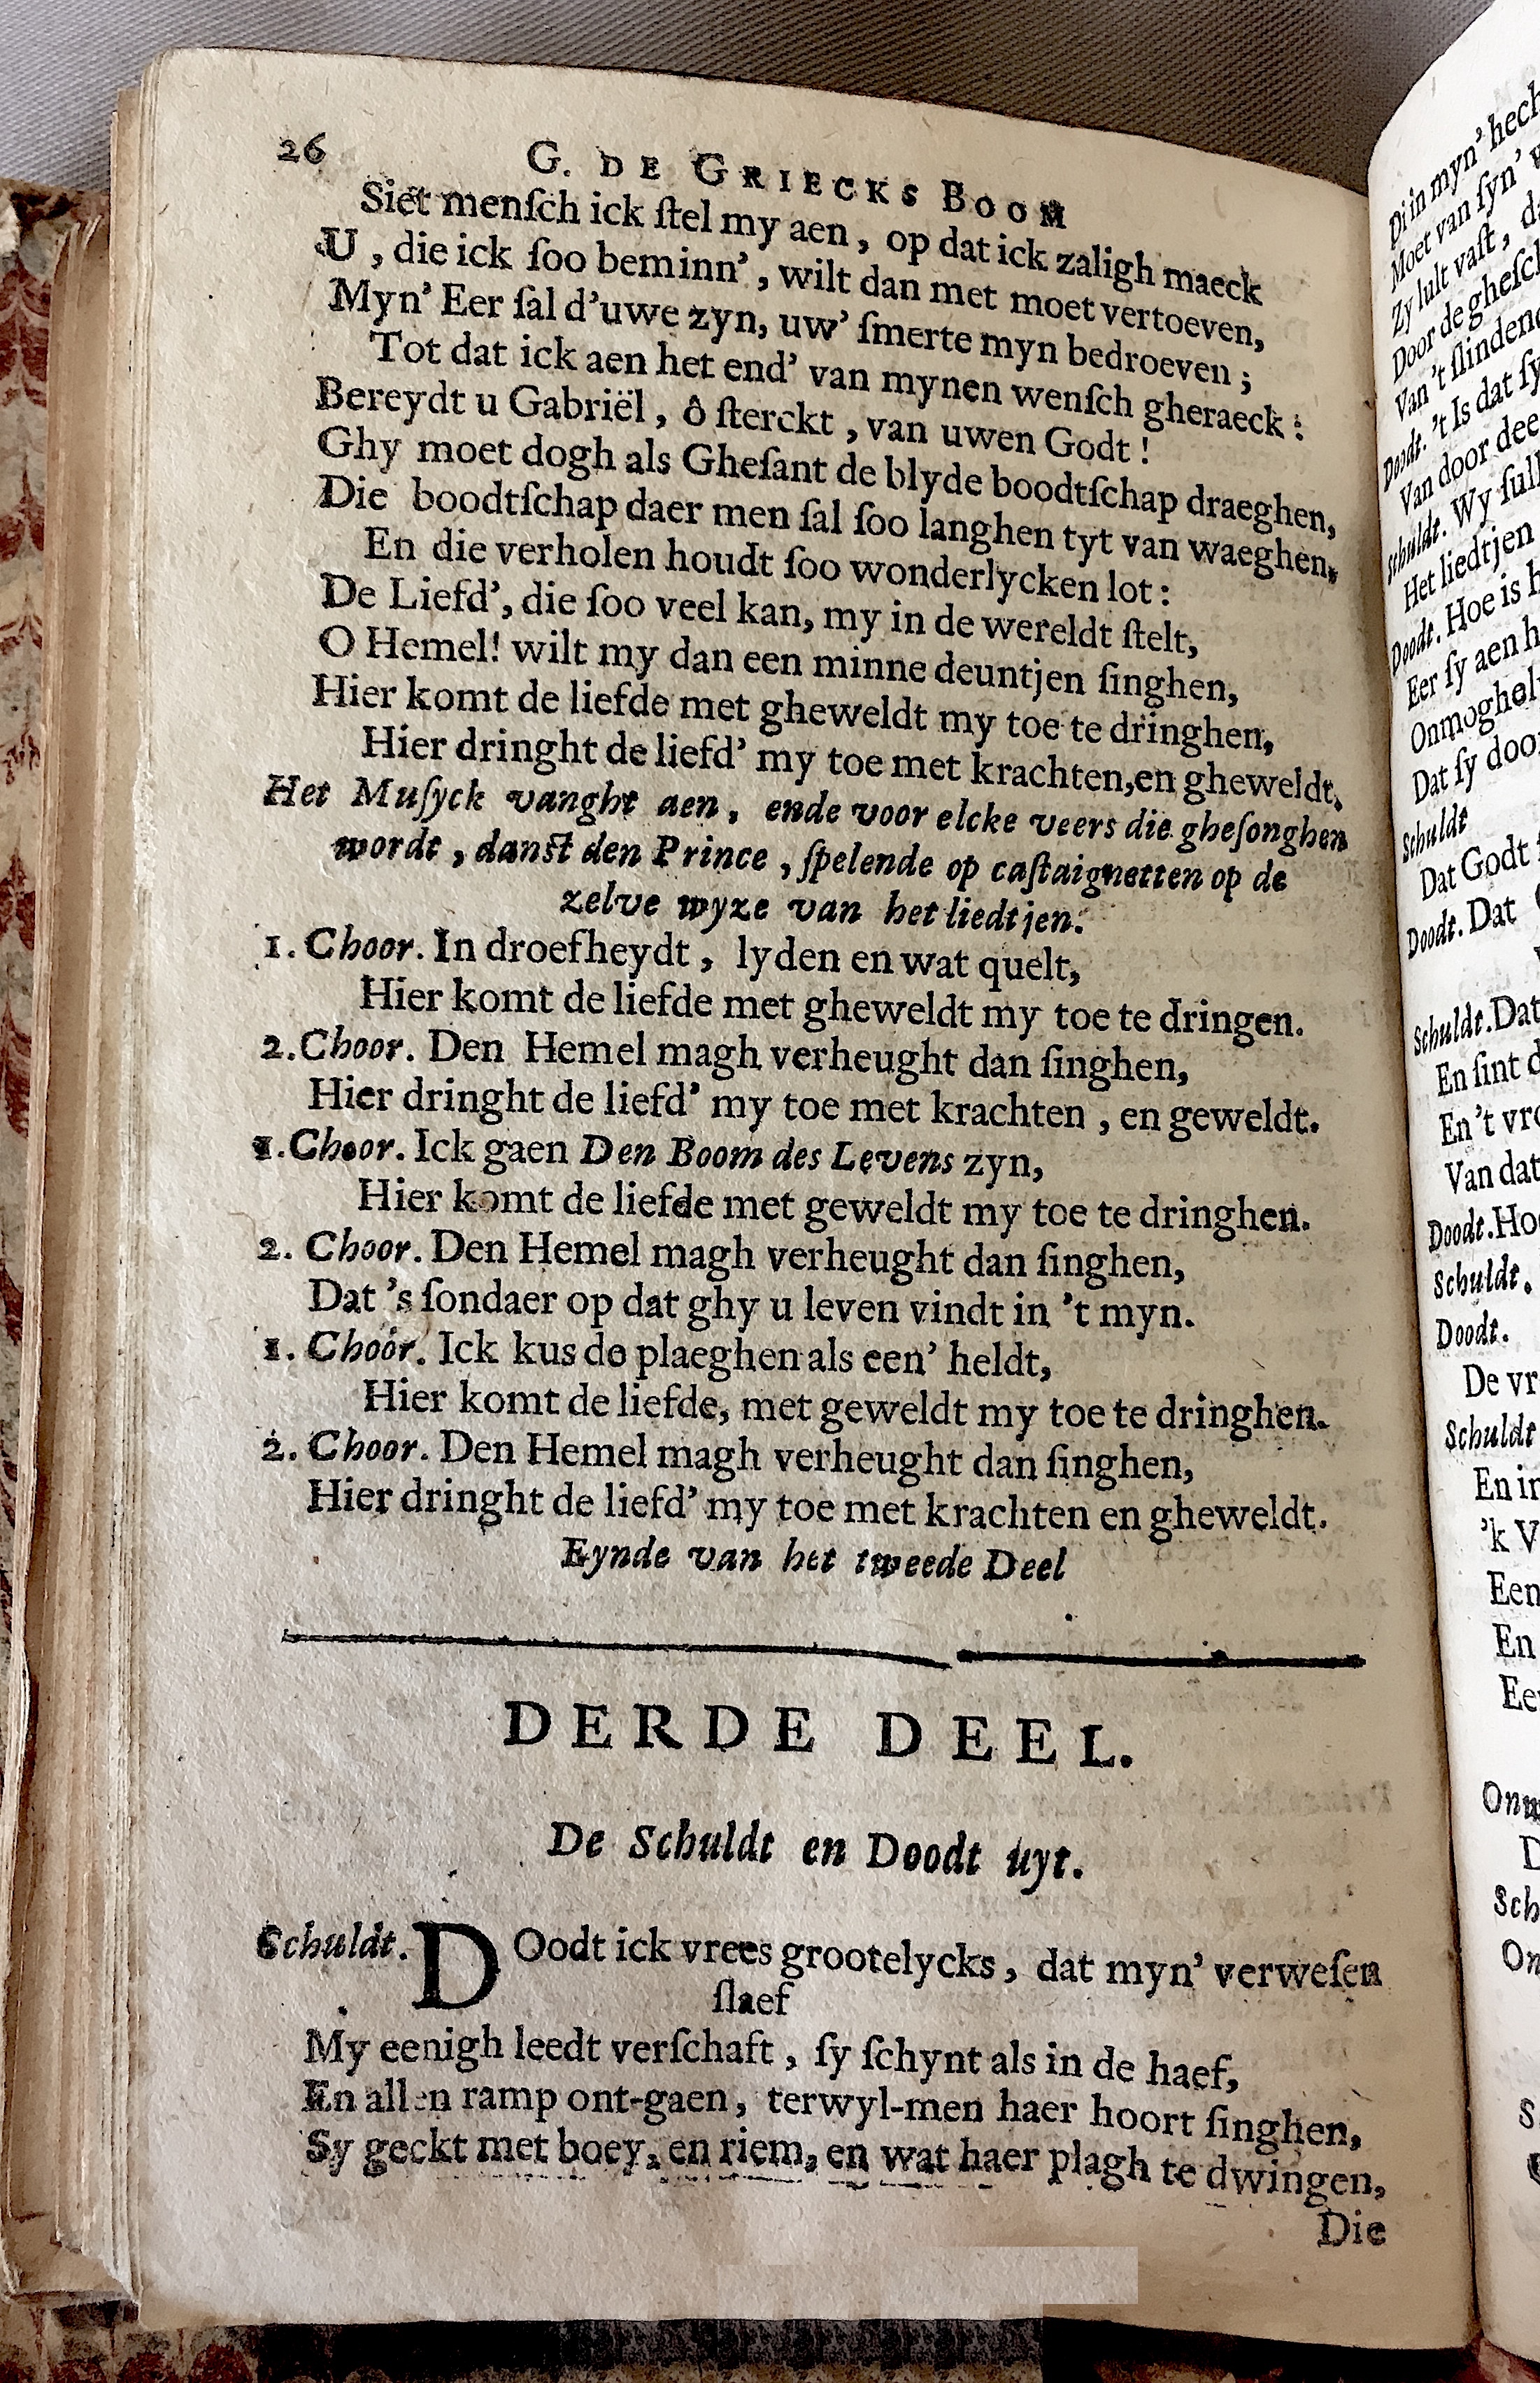 26
G. DE GRIECKS BOOM
Siet menſch ick ſtel my aen, op dat ick zaligh maeck
U, die ick ſoo beminn’, wilt dan met moet vertoeven,
Myn’ Eer ſal d’uwe zyn, uw’ ſmerte myn bedroeven;
Tot dat ick aen het end’ van mynen wenſch gheraeck:
Bereydt u Gabriël, ô ſterckt, van uwen Godt!
Ghy moet dogh als Gheſant de blyde boodtſchap draeghen,
Die boodtſchap daer men ſal ſoo langhen tyt van waeghen,
En die verholen houdt ſoo wonderlycken lot:
De Liefd’, die ſoo veel kan, my in de wereldt ſtelt,
O Hemel! wilt my dan een minne deuntjen ſinghen,
Hier komt de liefde met gheweldt my toe te dringhen,
Hier dringht de liefd’ my toe met krachten, en gheweldt.
Het Muſyck vanght aen, ende voor elcke veers die gheſonghen
wordt, danſt den Prince, ſpelende op caſtaignetten op de
zelve wyze van het liedtjen.
1. Choor. In droefheydt, lyden en wat quelt,
Hier komt de liefde met gheweldt my toe te dringen.
2. Choor. Den Hemel magh verheught dan ſinghen,
Hier dringht de liefd’ my toe met krachten, en geweldt.
1. Choor. Ick gaen Den Boom des Levens zyn,
Hier komt de liefde met geweldt my toe te dringhen.
2. Choor. Den Hemel magh verheught dan ſinghen,
Dat ’s ſondaer op dat ghy u leven vindt in ’t myn.
1. Choor. Ick kus de plaeghen als een’ heldt,
Hier komt de liefde, met geweldt my toe te dringhen.
2. Choor. Den Hemel magh verheught dan ſinghen,
Hier dringht de liefd’ my toe met krachten en gheweldt.
Eynde van het tweede Deel
DERDE DEEL.
De Schuldt en Doodt uyt.
Schuldt. DOodt ick vrees grootelycks, dat myn’ verweſen
ſlaef
My eenigh leedt verſchaft, ſy ſchynt als in de haef,
En allen ramp ont-gaen, terwyl-men haer hoort ſinghen,
Sy geckt met boey, en riem, en wat haer plagh te dwingen,
Die
Di in myn’ hech
Moet van ſyn’
Zy lult vaſt,
Door de gheſch
Van ’t ſlindend
Doodt. ’t Is dat ſy
Van door dee
Schuldt. Wy ſull
Het liedtjen
Doodt. Hoe is h
Eer ſy aen h
Onmoghel
Dat ſy door
Schuldt
Dat Godt
Doodt. Dat
Schuldt. Dat
En ſint d
En ’t vro
Van dat
Doodt. Ho
Schuldt.
Doodt.
De vr
Schuldt
En in
’k V
Een
En
Ee
Onw
D
Sch
On
S